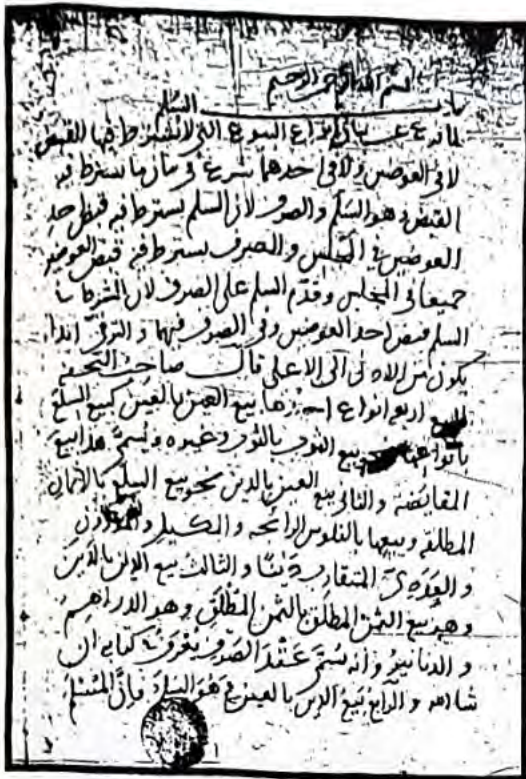 بسم الله الرحمن الرحيم
باب السلم
لما فرغ عن بيان انواع البيوع التي لا يشترط فيها القبض
لا في العوضين ولا في احدهما شرع في بيان ما يشترط فيه
القبض وهو السلم والصرف لان السلم يشترط فيه قبض احد
العوضين في المجلس والصرف يشترط فيه قبض العوضين
جميعا في المجلس وقدم السلم على الصرف لان الشرط في
السلم قبض احد العوضين وفي الصرف فيهما والترقي ابدا
يكون من الادنى الى الاعلى قال صاحب التحفة
البيع اربع انواع احدها بيع العين بالعين كبيع السلع
بانواعها بيع الثوب بالثوب وغيره ويسمى هذا بيع
المقايضة والثاني بيع العين بالدين نحو بيع السلع بالاثمان
المطلقة وبيعها بالفلوس الرائجة والمكيل والموزون
والعددي المتقارب دينا والثالث بيع الدين بالدين
وهو بيع الثمن المطلق بالثمن المطلق وهو الدراهم
والدنانير وانه يسمى عقد الصرف يعرف في كتابه ان
شا الله والرابع بيع الدين بالعين وهو السلم فان المسلم